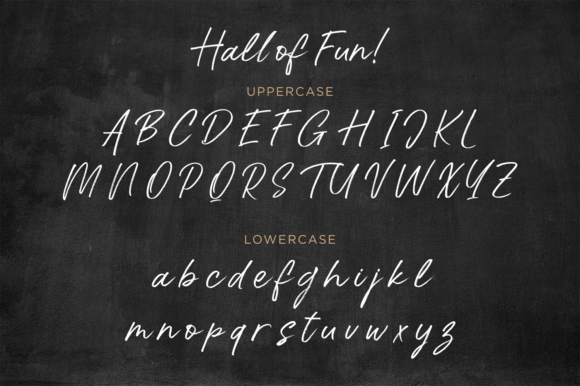 Hall of Fun!
UPPERCASE
A B C D E F G H I J K L
M N O P Q R S T U V W X Y Z
LOWERCASE
a b c d e f g h i j k l
m n o p q r s t u v w x y z